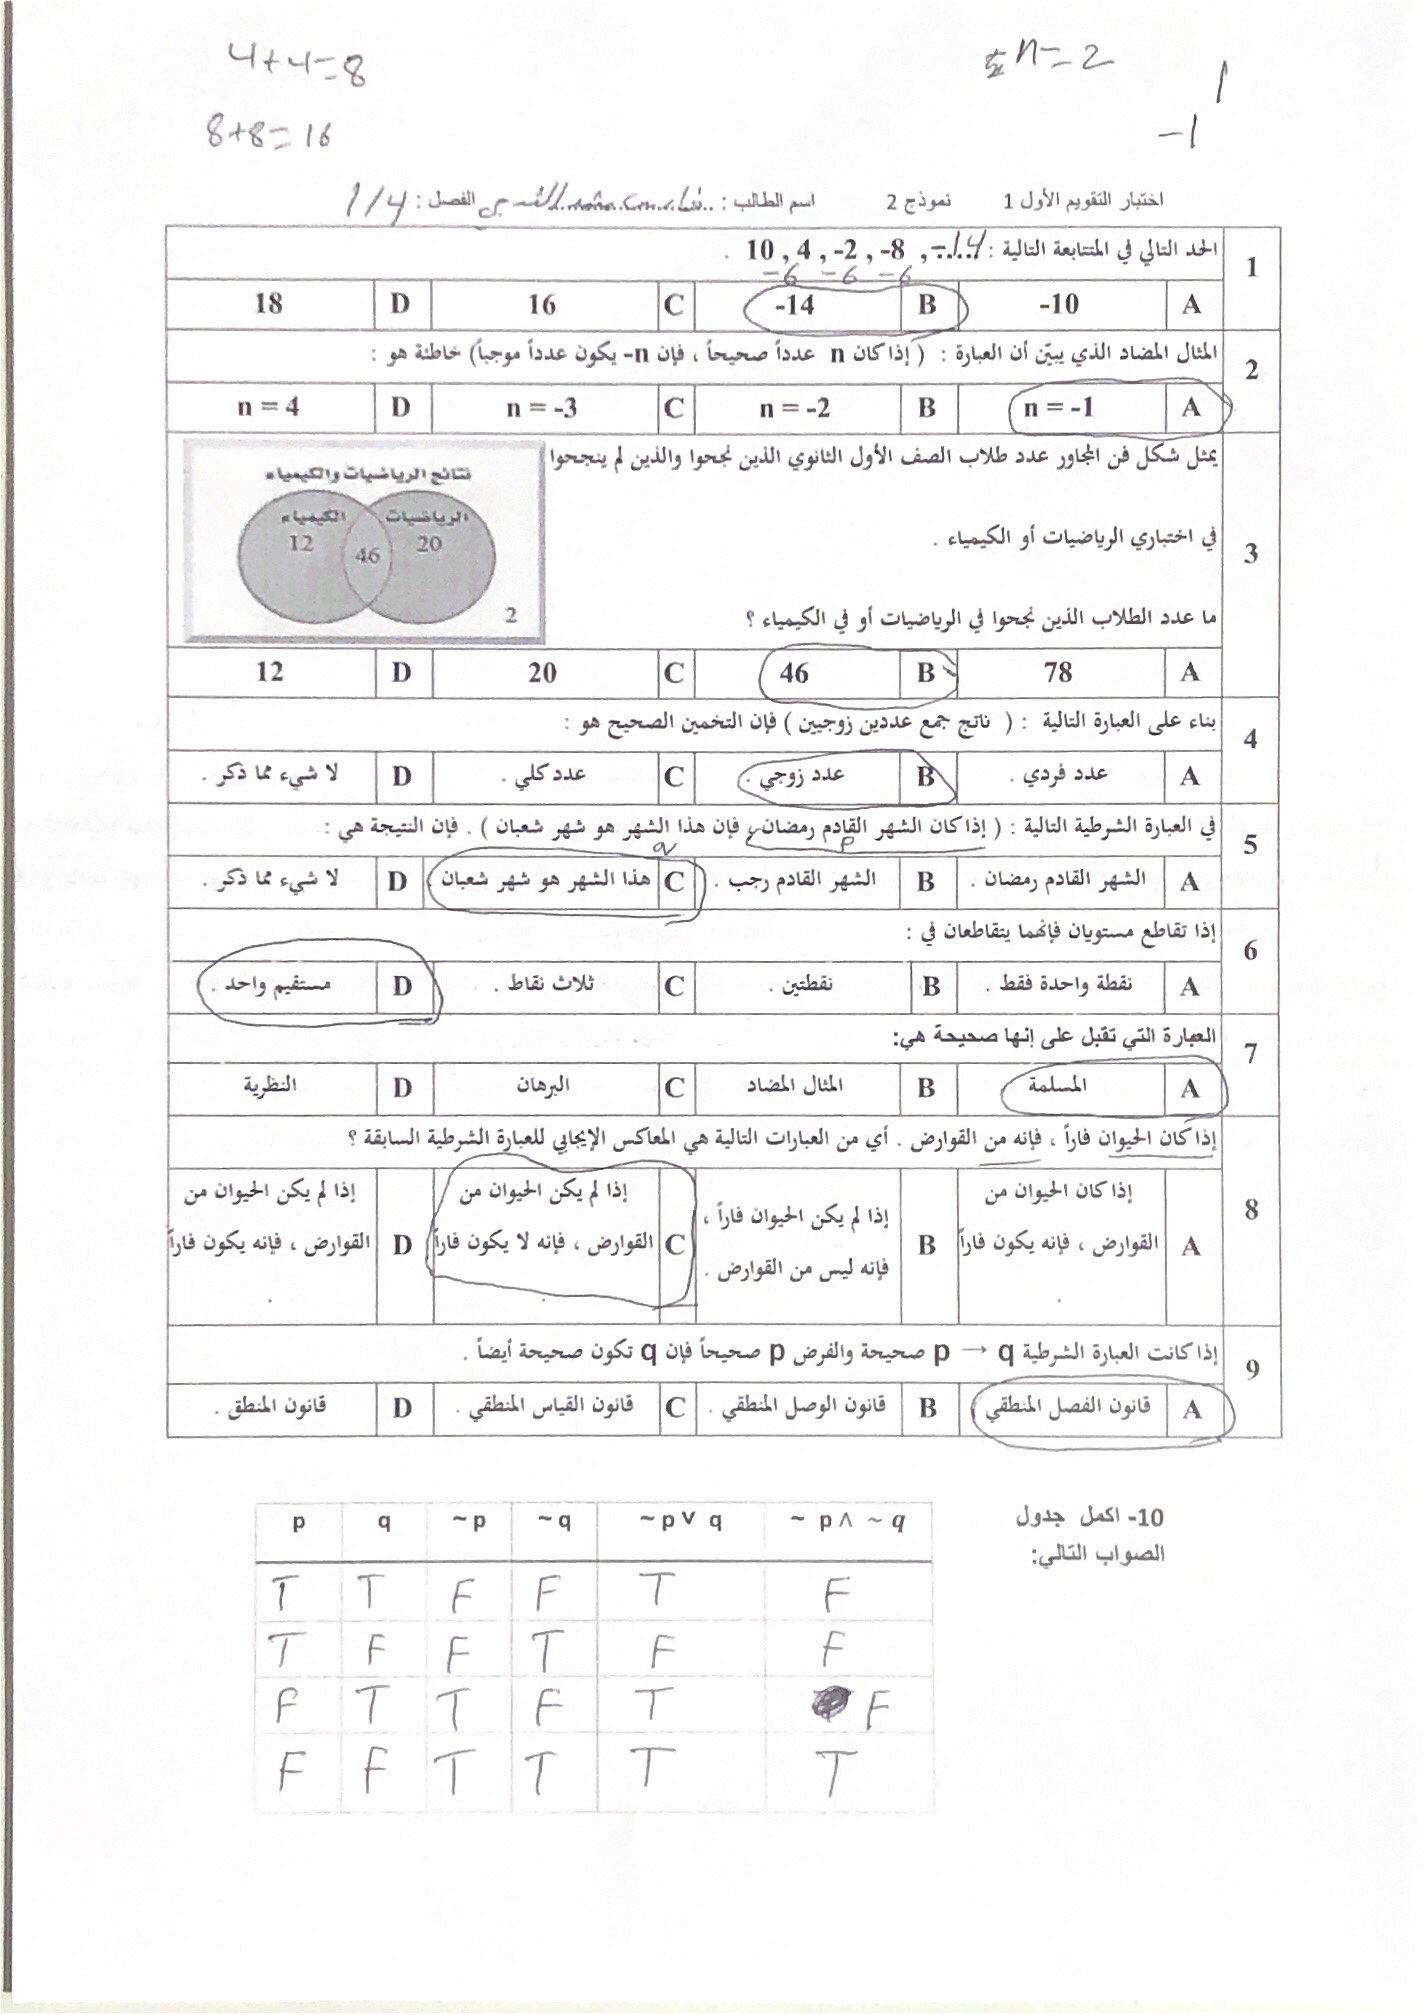 4+4=8
n=2
1
8+8=16
-1
اختبار التقويم الأول 1 نموذج 2 اسم الطالب : الفصل : 1/4
1 الحد التالي في المتتابعة التالية : 10 , 4 , -2 , -8 , -14 .
-6 -6 -6
A -10 B -14 C 16 D 18
2 المثال المضاد الذي يبيّن أن العبارة : ( إذا كان n عدداً صحيحاً ، فإن n- يكون عدداً موجباً) خاطئة هو :
A n = -1 B n = -2 C n = -3 D n = 4
3 يمثل شكل فن المجاور عدد طلاب الصف الأول الثانوي الذين نجحوا والذين لم ينجحوا
في اختباري الرياضيات أو الكيمياء .
ما عدد الطلاب الذين نجحوا في الرياضيات أو في الكيمياء ؟
نتائج الرياضيات والكيمياء
الرياضيات الكيمياء
20 46 12
2
A 78 B 46 C 20 D 12
4 بناء على العبارة التالية : ( ناتج جمع عددين زوجيين ) فإن التخمين الصحيح هو :
A عدد فردي . B عدد زوجي . C عدد كلي . D لا شيء مما ذكر .
5 في العبارة الشرطية التالية : ( إذا كان الشهر القادم رمضان ، فإن هذا الشهر هو شهر شعبان ) . فإن النتيجة هي :
p q
A الشهر القادم رمضان . B الشهر القادم رجب . C هذا الشهر هو شهر شعبان . D لا شيء مما ذكر .
6 إذا تقاطع مستويان فإنهما يتقاطعان في :
A نقطة واحدة فقط . B نقطتين . C ثلاث نقاط . D مستقيم واحد .
7 العبارة التي تقبل على إنها صحيحة هي:
A المسلمة B المثال المضاد C البرهان D النظرية
8 إذا كان الحيوان فاراً ، فإنه من القوارض . أي من العبارات التالية هي المعاكس الإيجابي للعبارة الشرطية السابقة ؟
A إذا كان الحيوان من
القوارض ، فإنه يكون فاراً
.
B إذا لم يكن الحيوان فاراً ،
فإنه ليس من القوارض .
C إذا لم يكن الحيوان من
القوارض ، فإنه لا يكون فاراً
.
D إذا لم يكن الحيوان من
القوارض ، فإنه يكون فاراً
.
9 إذا كانت العبارة الشرطية p → q صحيحة والفرض p صحيحاً فإن q تكون صحيحة أيضاً .
A قانون الفصل المنطقي B قانون الوصل المنطقي . C قانون القياس المنطقي . D قانون المنطق .
10- اكمل جدول
الصواب التالي:
p q ~p ~q ~p ∨ q ~ p ∧ ~ q
T T F F T F
T F F T F F
F T T F T F
F F T T T T